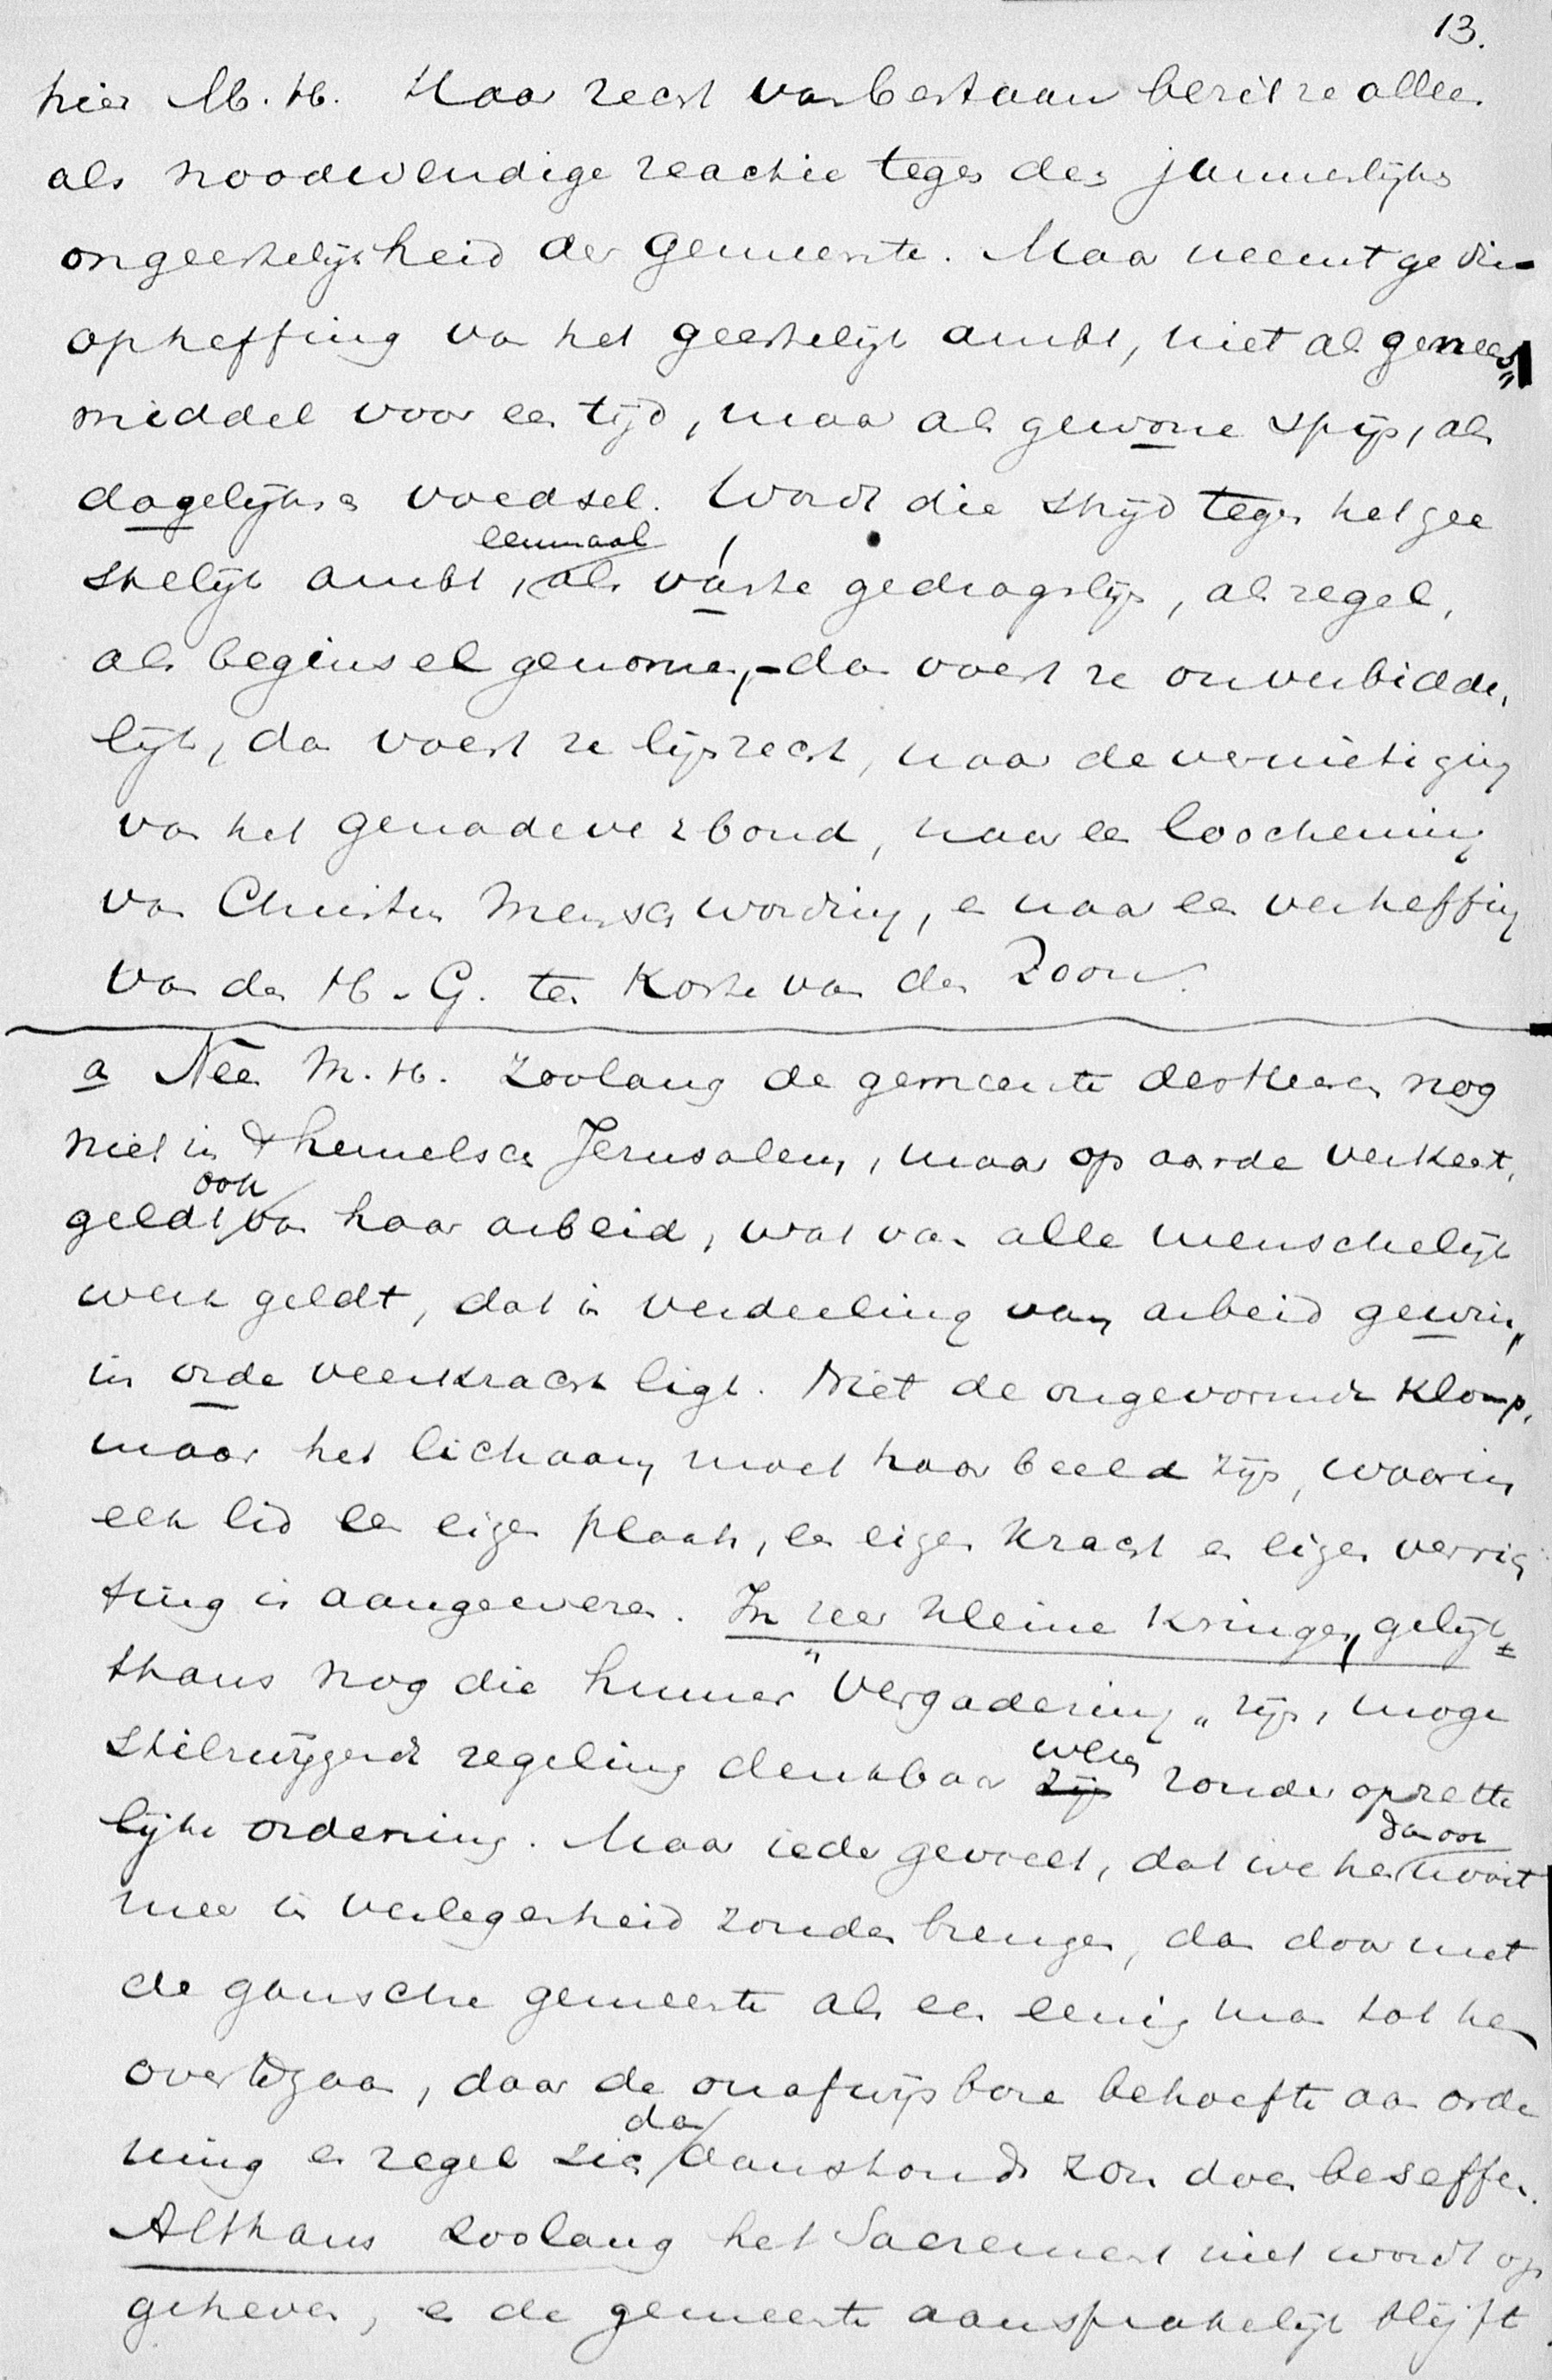 13.
hier M.H. Haar recht van bestaan bezit ze alleen
als noodwendige reactie tegen den jammerlijke
ongeestelijkheid der gemeente. Maar neemt ge die
opheffing van het geestelijk ambt, niet als genees„
middel voor een tijd, maar als gewone spijs, als
dagelijksch voedsel. Wordt die strijd tegen het gee
stelijk ambt, eenmaal als vaste gedragslijn, als regel,
als beginsel genomen,- dan voert ze onverbidde,
lijk, dan voert ze lijnrecht, naar de vernietiging
van het genadeverbond, naar een loochening
van Christus Menschwording, en naar een verheffing
van den H. G. ten koste van den Zoon.
a Neen M.H. Zoolang de gemeente des Heeren nog
niet in 't hemelsch Jerusalem, maar op aarde verkeert,
geldt ook van haar arbeid, wat van alle menschelijk
werk geldt, dat in verdeeling van arbeid gewin,
in orde veerkracht ligt. Niet de ongevormde klomp,
maar het lichaam moet haar beeld zijn, waarin
elk lid een eigen plaats, een eigen kracht en eigen verrich
ting is aangewezen. In zeer kleine kringen, gelijk
thans nog die hunner "Vergadering„ zijn, moge
stilzwijgende regeling denkbaar zijn wezen zonder opzette
lijke ordening. Maar ieder gevoelt, dat we hen dan ook nooit
meer in verlegenheid zouden brengen, dan door met
de gansche gemeente als een eenig man tot hen
over te gaan, daar de onafwijsbare behoefte aan orde
ning en regel zich dan aanstonds zou doen beseffen.
Althans zoolang het Sacrament niet wordt op
geheven, en de gemeente aansprakelijk blijft